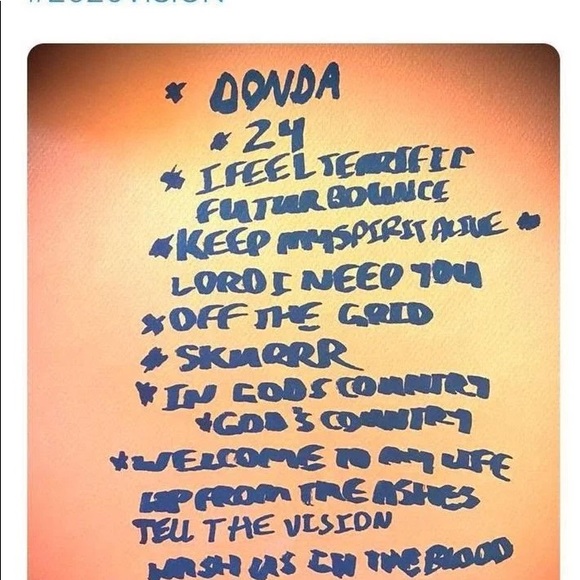 #2020VISION
* DONDA
* 24
* I FEEL TERRIFIC
FUTUR BOUNCE
* KEEP MY SPIRIT ALIVE *
LORD I NEED YOU
* OFF THE GRID
* SKURRR
* IN GODS COUNTRY
* GOD'S COUNTRY
* WELCOME TO MY LIFE
UP FROM THE ASHES
TELL THE VISION
WASH US IN THE BLOOD